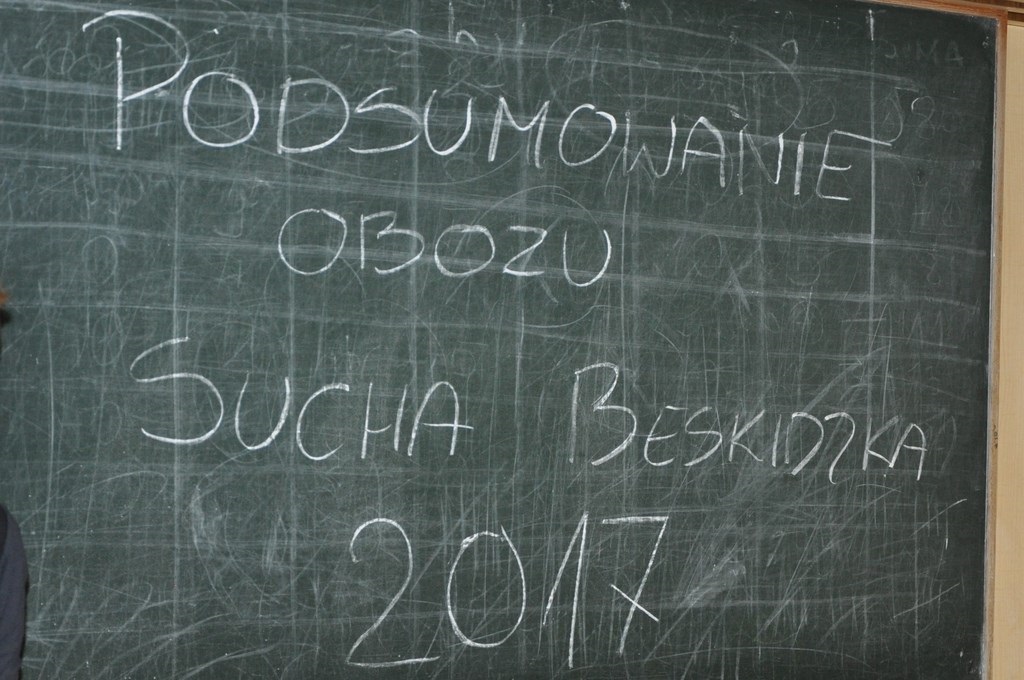 PODSUMOWANIE
OBOZU
SUCHA BESKIDZKA
2017